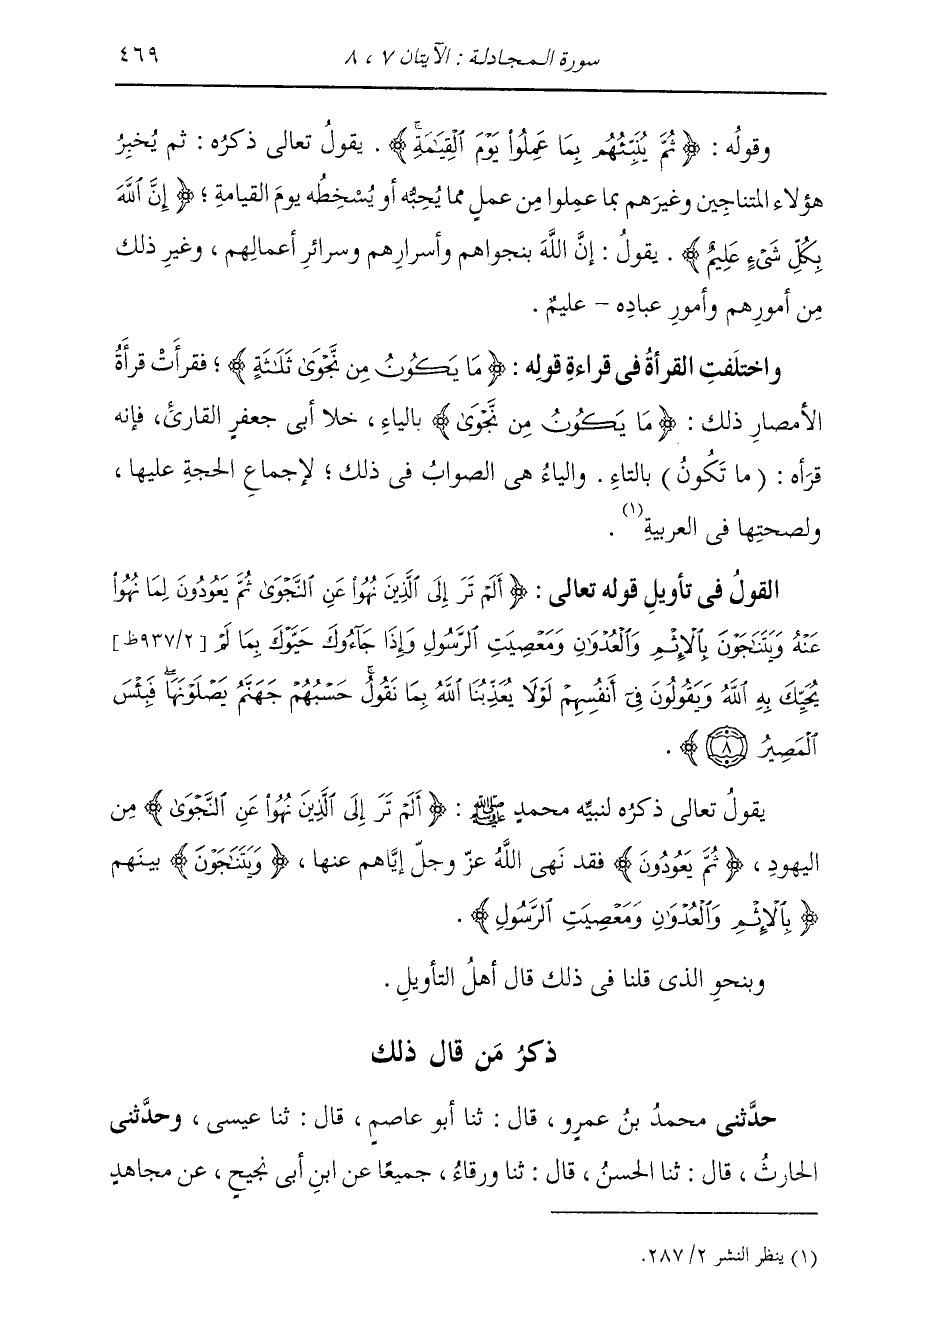 سورة المجادلة : الآيتان ٧ ، ٨ ٤٦٩
وقولُه : ﴿ ثُمَّ يُنَبِّئُهُم بِمَا عَمِلُوا۟ يَوْمَ ٱلْقِيَـٰمَةِۚ ﴾ . يقولُ تعالى ذكرُه : ثم يُخبِرُ
هؤلاء المتناجِين وغيرَهم بما عمِلوا مِن عملٍ مما يُحِبُّه أو يُسْخِطُه يومَ القيامةِ ؛ ﴿ إِنَّ ٱللَّهَ
بِكُلِّ شَىْءٍ عَلِيمٌ ﴾ . يقولُ : إنَّ اللَّهَ بنجواهم وأسرارِهم وسرائرِ أعمالِهم ، وغيرِ ذلك
مِن أمورِهم وأمورِ عبادِه – عليمٌ .
واختلَفتِ القرأةُ فى قراءةِ قولِه : ﴿ مَا يَكُونُ مِن نَّجْوَىٰ ثَلَـٰثَةٍ ﴾ ؛ فقرأَتْ قرأَةُ
الأمصارِ ذلك : ﴿ مَا يَكُونُ مِن نَّجْوَىٰ ﴾ بالياءِ ، خلا أبى جعفرٍ القارئُ، فإنه
قرَأه : ( ما تَكُونُ ) بالتاءِ . والياءُ هى الصوابُ فى ذلك ؛ لإجماعِ الحجةِ عليها ،
ولصحتِها فى العربيةِ(١) .
القولُ فى تأويلِ قوله تعالى : ﴿ أَلَمْ تَرَ إِلَى ٱلَّذِينَ نُهُوا۟ عَنِ ٱلنَّجْوَىٰ ثُمَّ يَعُودُونَ لِمَا نُهُوا۟
عَنْهُ وَيَتَنَـٰجَوْنَ بِٱلْإِثْمِ وَٱلْعُدْوَٰنِ وَمَعْصِيَتِ ٱلرَّسُولِ وَإِذَا جَآءُوكَ حَيَّوْكَ بِمَا لَمْ [٩٣٧/٢ظ]
يُحَيِّكَ بِهِ ٱللَّهُ وَيَقُولُونَ فِىٓ أَنفُسِهِمْ لَوْلَا يُعَذِّبُنَا ٱللَّهُ بِمَا نَقُولُۚ حَسْبُهُمْ جَهَنَّمُ يَصْلَوْنَهَاۖ فَبِئْسَ
ٱلْمَصِيرُ ٨ ﴾ .
يقولُ تعالى ذكرُه لنبيِّه محمدٍ ﷺ : ﴿ أَلَمْ تَرَ إِلَى ٱلَّذِينَ نُهُوا۟ عَنِ ٱلنَّجْوَىٰ ﴾ مِن
اليهودِ ، ﴿ ثُمَّ يَعُودُونَ ﴾ فقد نَهى اللَّهُ عزّ وجلّ إيَّاهم عنها ، ﴿ وَيَتَنَـٰجَوْنَ ﴾ بينَهم
﴿ بِٱلْإِثْمِ وَٱلْعُدْوَٰنِ وَمَعْصِيَتِ ٱلرَّسُولِ ﴾ .
وبنحوِ الذى قلنا فى ذلك قال أهلُ التأويلِ .
ذكرُ مَن قال ذلك
حدَّثنى محمدُ بنُ عمرٍو ، قال : ثنا أبو عاصمٍ ، قال : ثنا عيسى ، وحدَّثنى
الحارثُ ، قال : ثنا الحسنُ ، قال : ثنا ورقاءُ ، جميعًا عن ابنِ أبى نجيحٍ ، عن مجاهدٍ
(١) ينظر النشر ٢/ ٢٨٧.